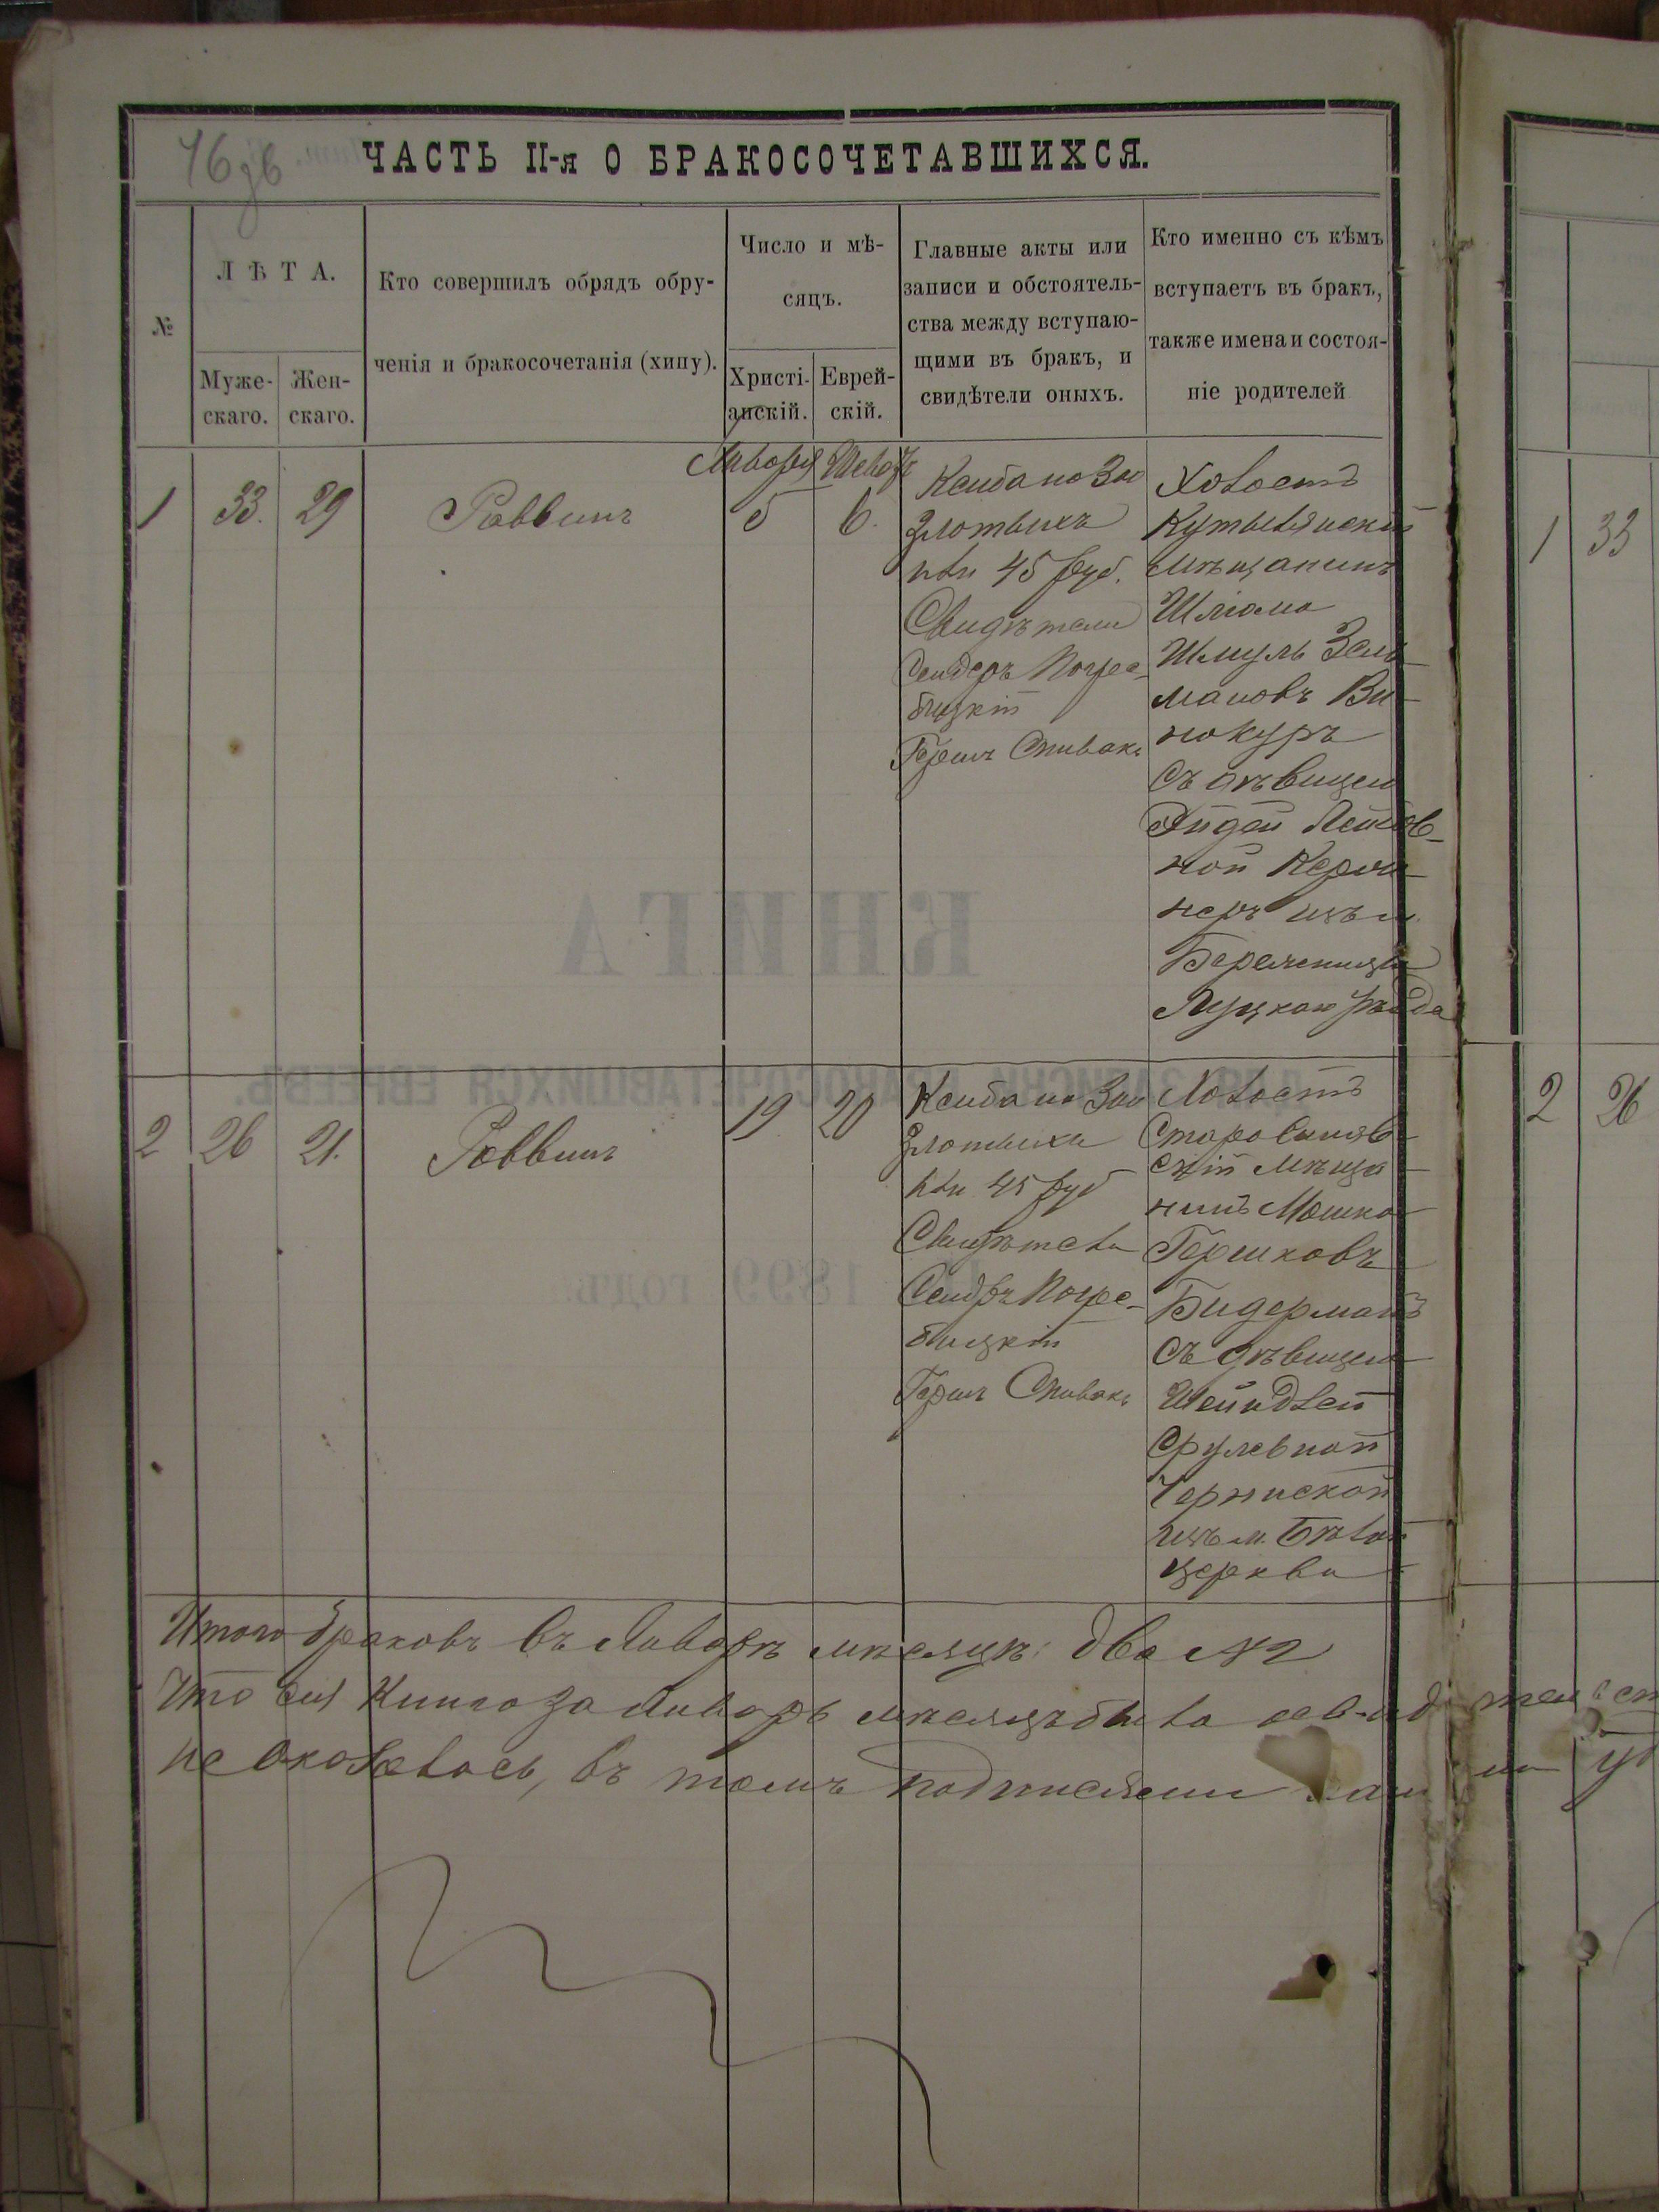 ЧАСТЬ II-я О БРАКОСОЧЕТАВШИХСЯ.
№
ЛѢТА.
Муже-
скаго.
Жен-
скаго.
Кто совершилъ обрядъ обру-
ченія и бракосочетанія (хипу).
Число и мѣ-
сяцъ.
Христі-
анскій.
Еврей-
скій.
Главные акты или
записи и обстоятель-
ства между вступаю-
щими въ бракъ, и
свидѣтели оныхъ.
Кто именно съ кѣмъ
вступаетъ въ бракъ,
также имена и состоя-
ніе родителей
1
33.
29
Раввинъ
Января
5
6.
злотыхъ
45 руб.
Свидѣтели
Сендеръ Погре-
бицкій
Гершъ Спивакъ
Холостъ
мѣщанинъ
Шлiома
Шмуль Зель-
мановъ Ви-
нокуръ
съ дѣвицею
ной
изъ м.
Луцкаго уѣзда
2
26
21.
Раввинъ
19
20
злотыхъ
45 руб
Свидѣтели
Сендеръ Погре-
бицкій
Гершъ Спивакъ
Холостъ
скій мѣща-
нинъ Мошко
Гершковъ
Бидерманъ
съ дѣвицею
Шейндлей
Срулевной
Черниской
изъ м. Бѣлой
церкви
Итого браковъ въ Январѣ мѣсяцѣ два №2
Что сия Книга за Январь мѣсяцъ была
не оказалось, въ томъ подписями
КНИГА
ДЛЯ ЗАПИСКИ БРАКОСОЧЕТАВШИХСЯ ЕВРЕЕВЪ.
1899 годъ
1
33
2
26